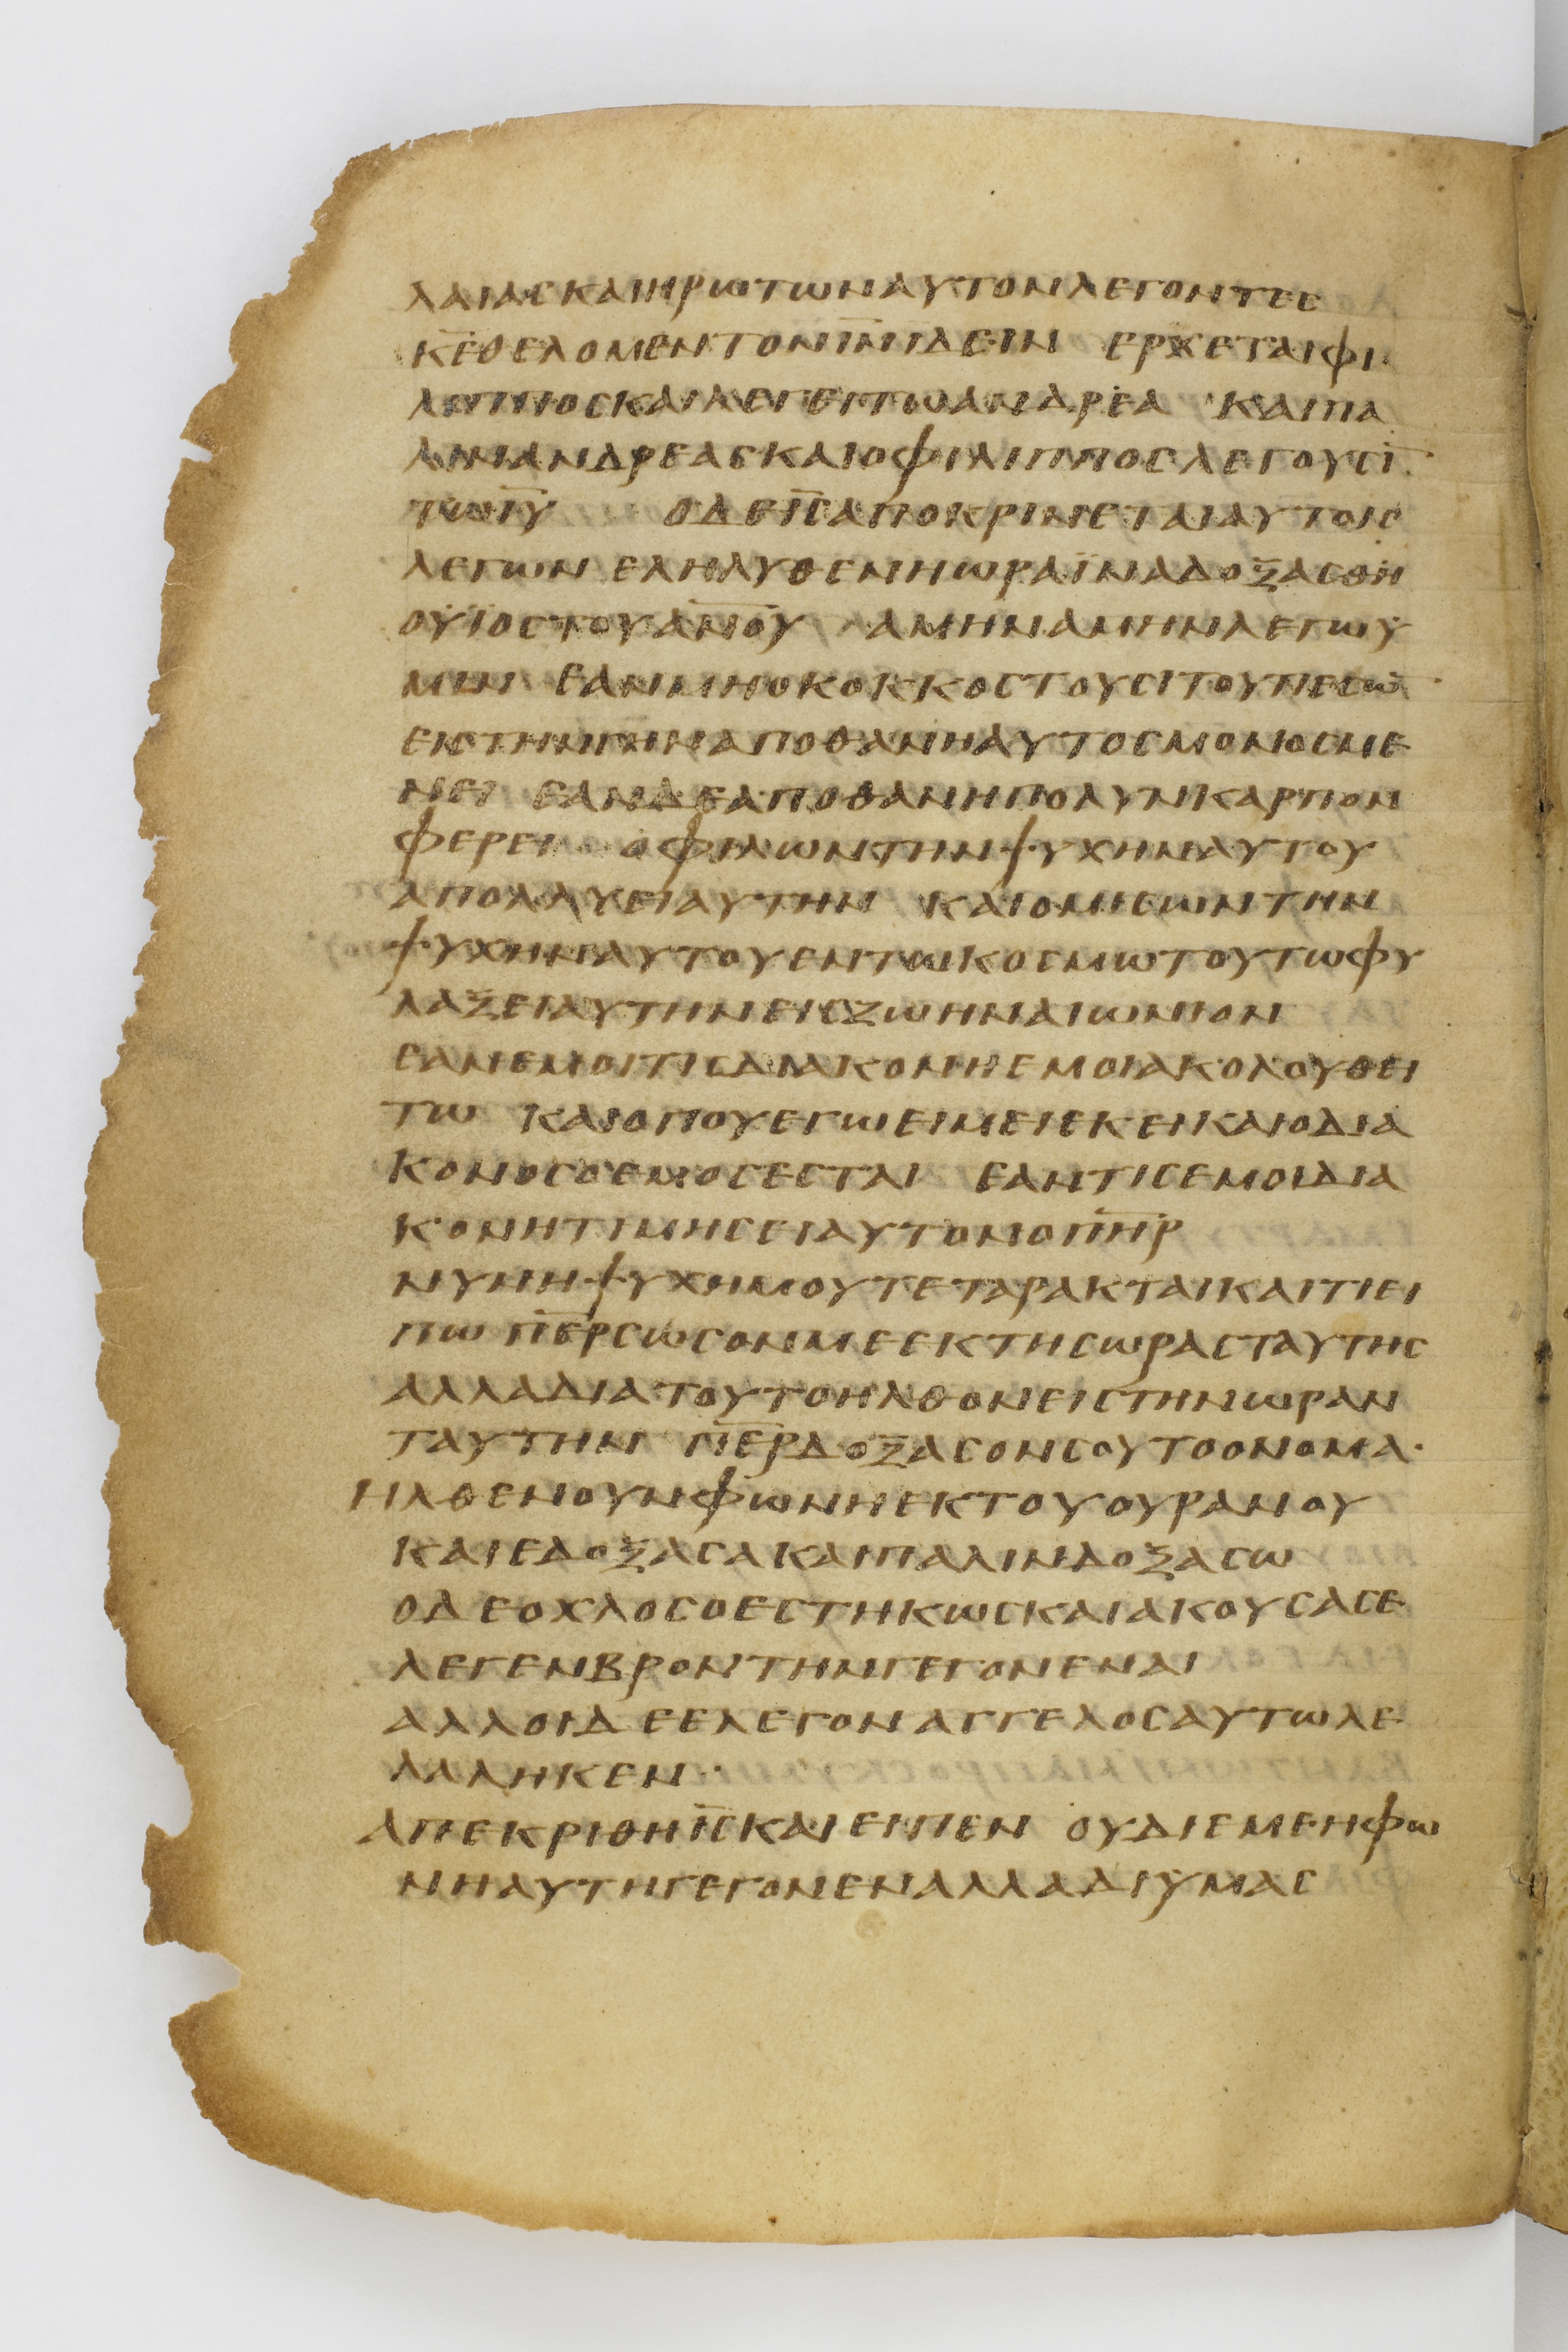 ΛΑΙΑΣ ΚΑΙ ΗΡΩΤΩΝ ΑΥΤΟΝ ΛΕΓΟΝΤΕΣ
Κ̅Ε̅ ΘΕΛΟΜΕΝ ΤΟΝ Ι̅Ν̅ ΙΔΕΙΝ ΕΡΧΕΤΑΙ ΦΙ
ΛΙΠΠΟΣ ΚΑΙ ΛΕΓΕΙ ΤΩ ΑΝΔΡΕΑ ΚΑΙ ΠΑ
ΛΙΝ ΑΝΔΡΕΑΣ ΚΑΙ Ο ΦΙΛΙΠΠΟΣ ΛΕΓΟΥΣΙ̅
ΤΩ Ι̅Υ̅ Ο ΔΕ Ι̅Σ̅ ΑΠΟΚΡΙΝΕΤΑΙ ΑΥΤΟΙΣ
ΛΕΓΩΝ ΕΛΗΛΥΘΕΝ Η ΩΡΑ ΪΝΑ ΔΟΞΑΣΘΗ
Ο ΥΪΟΣ ΤΟΥ Α̅Ν̅Ο̅Υ̅ ΑΜΗΝ ΑΜΗΝ ΛΕΓΩ Υ
ΜΙΝ ΕΑΝ ΜΗ Ο ΚΟΚΚΟΣ ΤΟΥ ΣΙΤΟΥ ΠΕΣΩ̅
ΕΙΣ ΤΗΝ ΓΗΝ ΑΠΟΘΑΝΗ ΑΥΤΟΣ ΜΟΝΟΣ ΜΕ
ΝΕΙ ΕΑΝ ΔΕ ΑΠΟΘΑΝΗ ΠΟΛΥΝ ΚΑΡΠΟΝ
ΦΕΡΕΙ Ο ΦΙΛΩΝ ΤΗΝ ΨΥΧΗΝ ΑΥΤΟΥ
ΑΠΟΛΛΥΕΙ ΑΥΤΗΝ ΚΑΙ Ο ΜΙΣΩΝ ΤΗΝ
ΨΥΧΗΝ ΑΥΤΟΥ ΕΝ ΤΩ ΚΟΣΜΩ ΤΟΥΤΩ ΦΥ
ΛΑΞΕΙ ΑΥΤΗΝ ΕΙΣ ΖΩΗΝ ΑΙΩΝΙΟΝ
ΕΑΝ ΕΜΟΙ ΤΙΣ ΔΙΑΚΟΝΗ ΕΜΟΙ ΑΚΟΛΟΥΘΕΙ
ΤΩ ΚΑΙ ΟΠΟΥ ΕΓΩ ΕΙΜΕΙ ΕΚΕΙ ΚΑΙ Ο ΔΙΑ
ΚΟΝΟΣ Ο ΕΜΟΣ ΕΣΤΑΙ ΕΑΝ ΤΙΣ ΕΜΟΙ ΔΙΑ
ΚΟΝΗ ΤΙΜΗΣΕΙ ΑΥΤΟΝ Ο Π̅Η̅Ρ̅
ΝΥΝ Η ΨΥΧΗ ΜΟΥ ΤΕΤΑΡΑΚΤΑΙ ΚΑΙ ΤΙ ΕΙ
ΠΩ Π̅Ε̅Ρ̅ ΣΩΣΟΝ ΜΕ ΕΚ ΤΗΣ ΩΡΑΣ ΤΑΥΤΗΣ
ΑΛΛΑ ΔΙΑ ΤΟΥΤΟ ΗΛΘΟΝ ΕΙΣ ΤΗΝ ΩΡΑΝ
ΤΑΥΤΗΝ Π̅Ε̅Ρ̅ ΔΟΞΑΣΟΝ ΣΟΥ ΤΟ ΟΝΟΜΑ·
ΗΛΘΕΝ ΟΥΝ ΦΩΝΗ ΕΚ ΤΟΥ ΟΥΡΑΝΟΥ
ΚΑΙ ΕΔΟΞΑΣΑ ΚΑΙ ΠΑΛΙΝ ΔΟΞΑΣΩ
Ο ΔΕ ΟΧΛΟΣ Ο ΕΣΤΗΚΩΣ ΚΑΙ ΑΚΟΥΣΑΣ Ε
ΛΕΓΕΝ ΒΡΟΝΤΗΝ ΓΕΓΟΝΕΝΑΙ
ΑΛΛΟΙ ΔΕ ΕΛΕΓΟΝ ΑΓΓΕΛΟΣ ΑΥΤΩ ΛΕ
ΛΑΛΗΚΕΝ·
ΑΠΕΚΡΙΘΗ Ι̅Σ̅ ΚΑΙ ΕΙΠΕΝ ΟΥ ΔΙ ΕΜΕ Η ΦΩ
ΝΗ ΑΥΤΗ ΓΕΓΟΝΕΝ ΑΛΛΑ ΔΙ ΥΜΑΣ